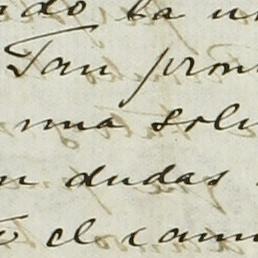 ado la u
Tan pron
una solu
n dudas
el cam